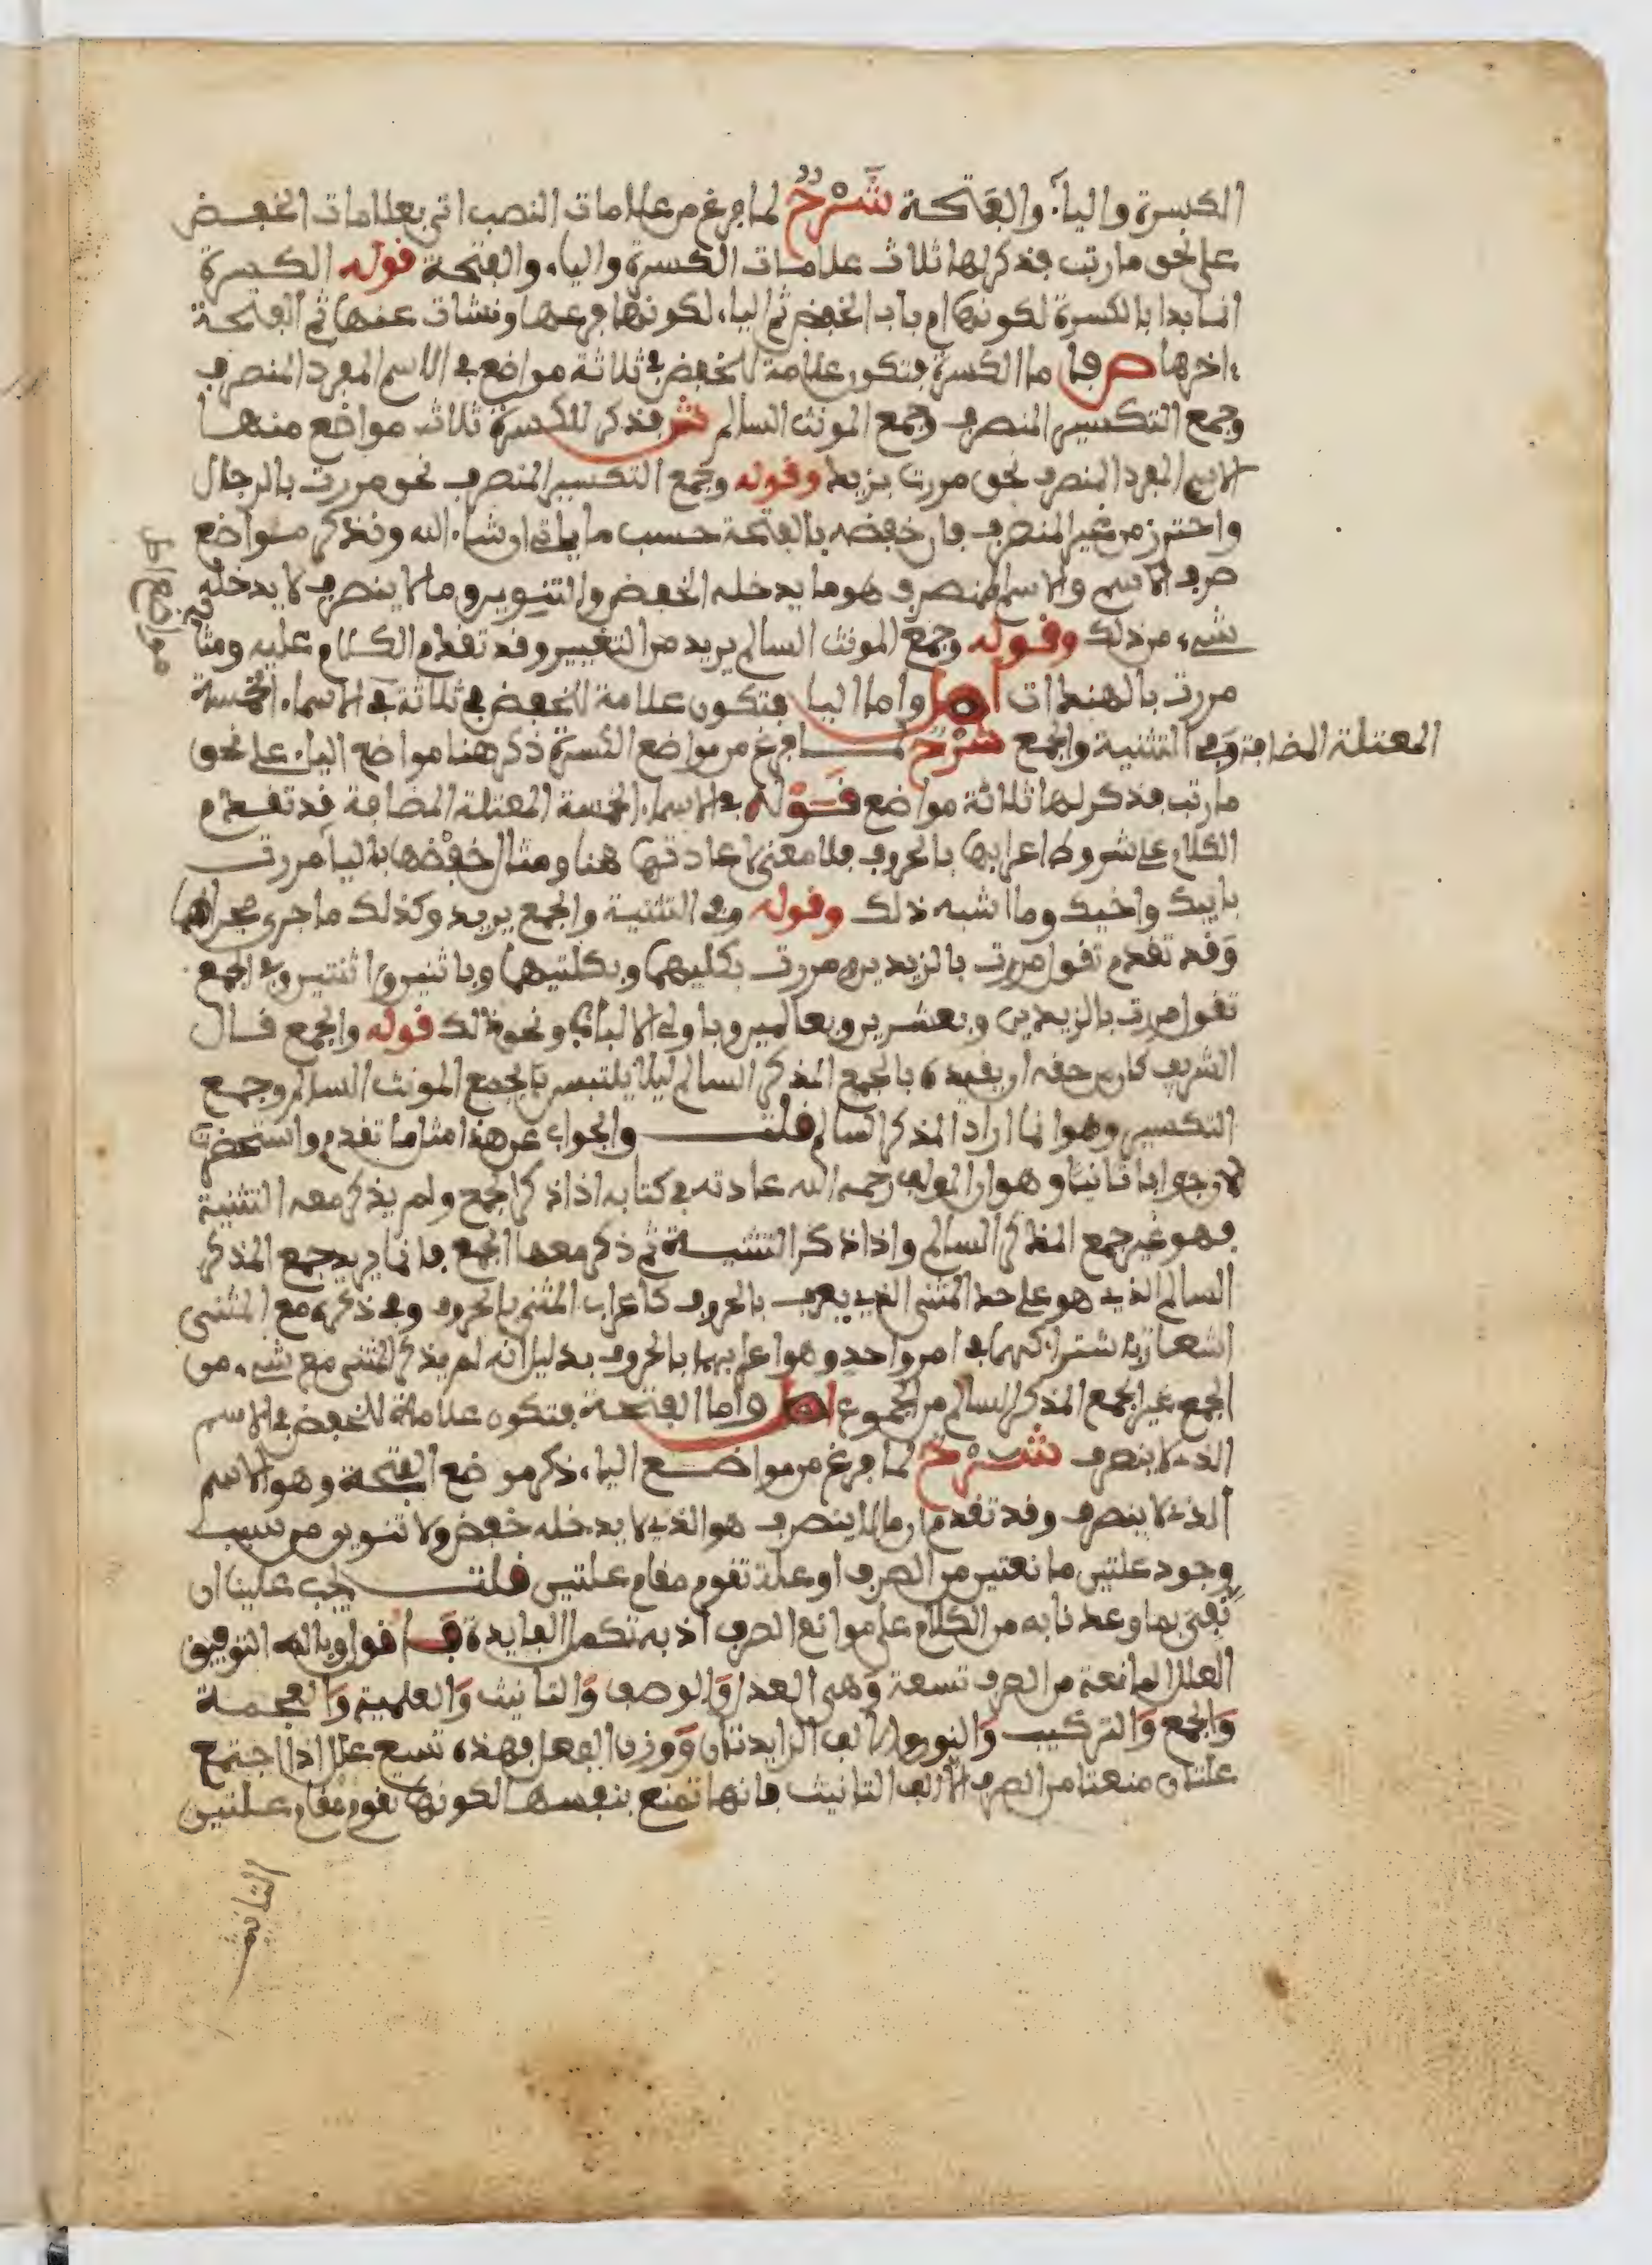 الكسرة والياء والفتحة شرح لما فرغ من علامات النصب اتى بعلامات الخفض
على نحو ما رتب فذكر لها ثلاث علامات الكسرة والياء والفتحة قوله الكسرة
انما بدا بالكسرة لكونها ام باب الخفض ثم الياء لكونها فرعها ونشات عنها ثم الفتحة
اخرها ص فاما الكسرة فتكون علامة للخفض في ثلاثة مواضع في الاسم المفرد المنصرف
وجمع التكسير المنصرف وجمع المونث السالم ش فذكر للكسرة ثلاث مواضع منها
الاسم المفرد المنصرف نحو مررت بزيد وقوله وجمع التكسير المنصرف نحو مررت بالرجال
واحترز من غير المنصرف فان خفضه بالفتحة حسب ما ياتي ان شاء الله ونذكر مواضع
صرف الاسم والاسم المنصرف هو ما يدخله الخفض والتنوين وما لا ينصرف لا يدخله
شيء من ذلك وقوله وجمع المونث السالم يريد من التغيير وقد تقدم الكلام عليه ومثاله
مررت بالهندات واما الياء فتكون علامة للخفض في ثلاثة في الاسماء الخمسة
المعتلة المضافة وفي التثنية والجمع شرح لما فرغ من مواضع الكسرة ذكر هنا مواضع الياء على نحو
ما رتب فذكر لها ثلاثة مواضع قوله في الاسماء الخمسة المعتلة المضافة قد تقدم
الكلام على شروط اعرابها بالحروف فلا معنى لاعادتها هنا ومثال خفضها بالياء مررت
بابيك واخيك وما اشبه ذلك وقوله وفي التثنية والجمع يريد وكذلك ما جرى مجراهما
وقد تقدم تقول مررت بالزيدين ومررت بكليهما وبكلتيهما وباثنين واثنتين وفي الجمع
تقول مررت بالزيدين وبعشرين وبعالمين وباولي الالباب ونحو ذلك قوله والجمع قال
الشريف كان من حقه ان يقيده بالجمع المذكر السالم ليلا يلتبس بالجمع المونث السالم وجمع
التكسير وهو انما اراد المذكر السالم قلت والجواب عن هذا مثل ما تقدم واستحضرت
الان جوابا ثانيا وهو ان المولف رحمه الله عادته في كتابه اذا ذكر الجمع ولم يذكر معه التثنية
فهو غير جمع المذكر السالم واذا ذكر التثنية ثم ذكر معها الجمع فانما يريد جمع المذكر
السالم الذي هو على حد المثنى الذي يعرب بالحروف كاعراب المثنى بالحروف وفي ذكره مع المثنى
اشعار باشتراكهما في امر واحد وهو اعرابهما بالحروف بدليل انه لم يذكر المثنى مع شيء من
الجمع غير الجمع المذكر السالم من الجموع واما الفتحة فتكون علامة للخفض في الاسم
الذي لا ينصرف شرح لما فرغ من مواضع الياء ذكر موضع الفتحة وهو الاسم
الذي لا ينصرف وقد تقدم ان ما لا ينصرف هو الذي لا يدخله خفض ولا تنوين من سبب
وجود علتين مانعتين من الصرف او علة تقوم مقام علتين قلت يجب علينا ان
نفي بما وعدنا به من الكلام على موانع الصرف اذ به تكمل الفايدة فاقول وبالله التوفيق
العلل المانعة من الصرف تسعة وهي العدل والوصف والتانيث والعلمية والعجمة
والجمع والتركيب والنون والالف الزايدتان ووزن الفعل فهذه تسع علل اذا اجتمع
علتان منعتا من الصرف الا الف التانيث فانها تمنع بنفسها لكونها تقوم مقام علتين